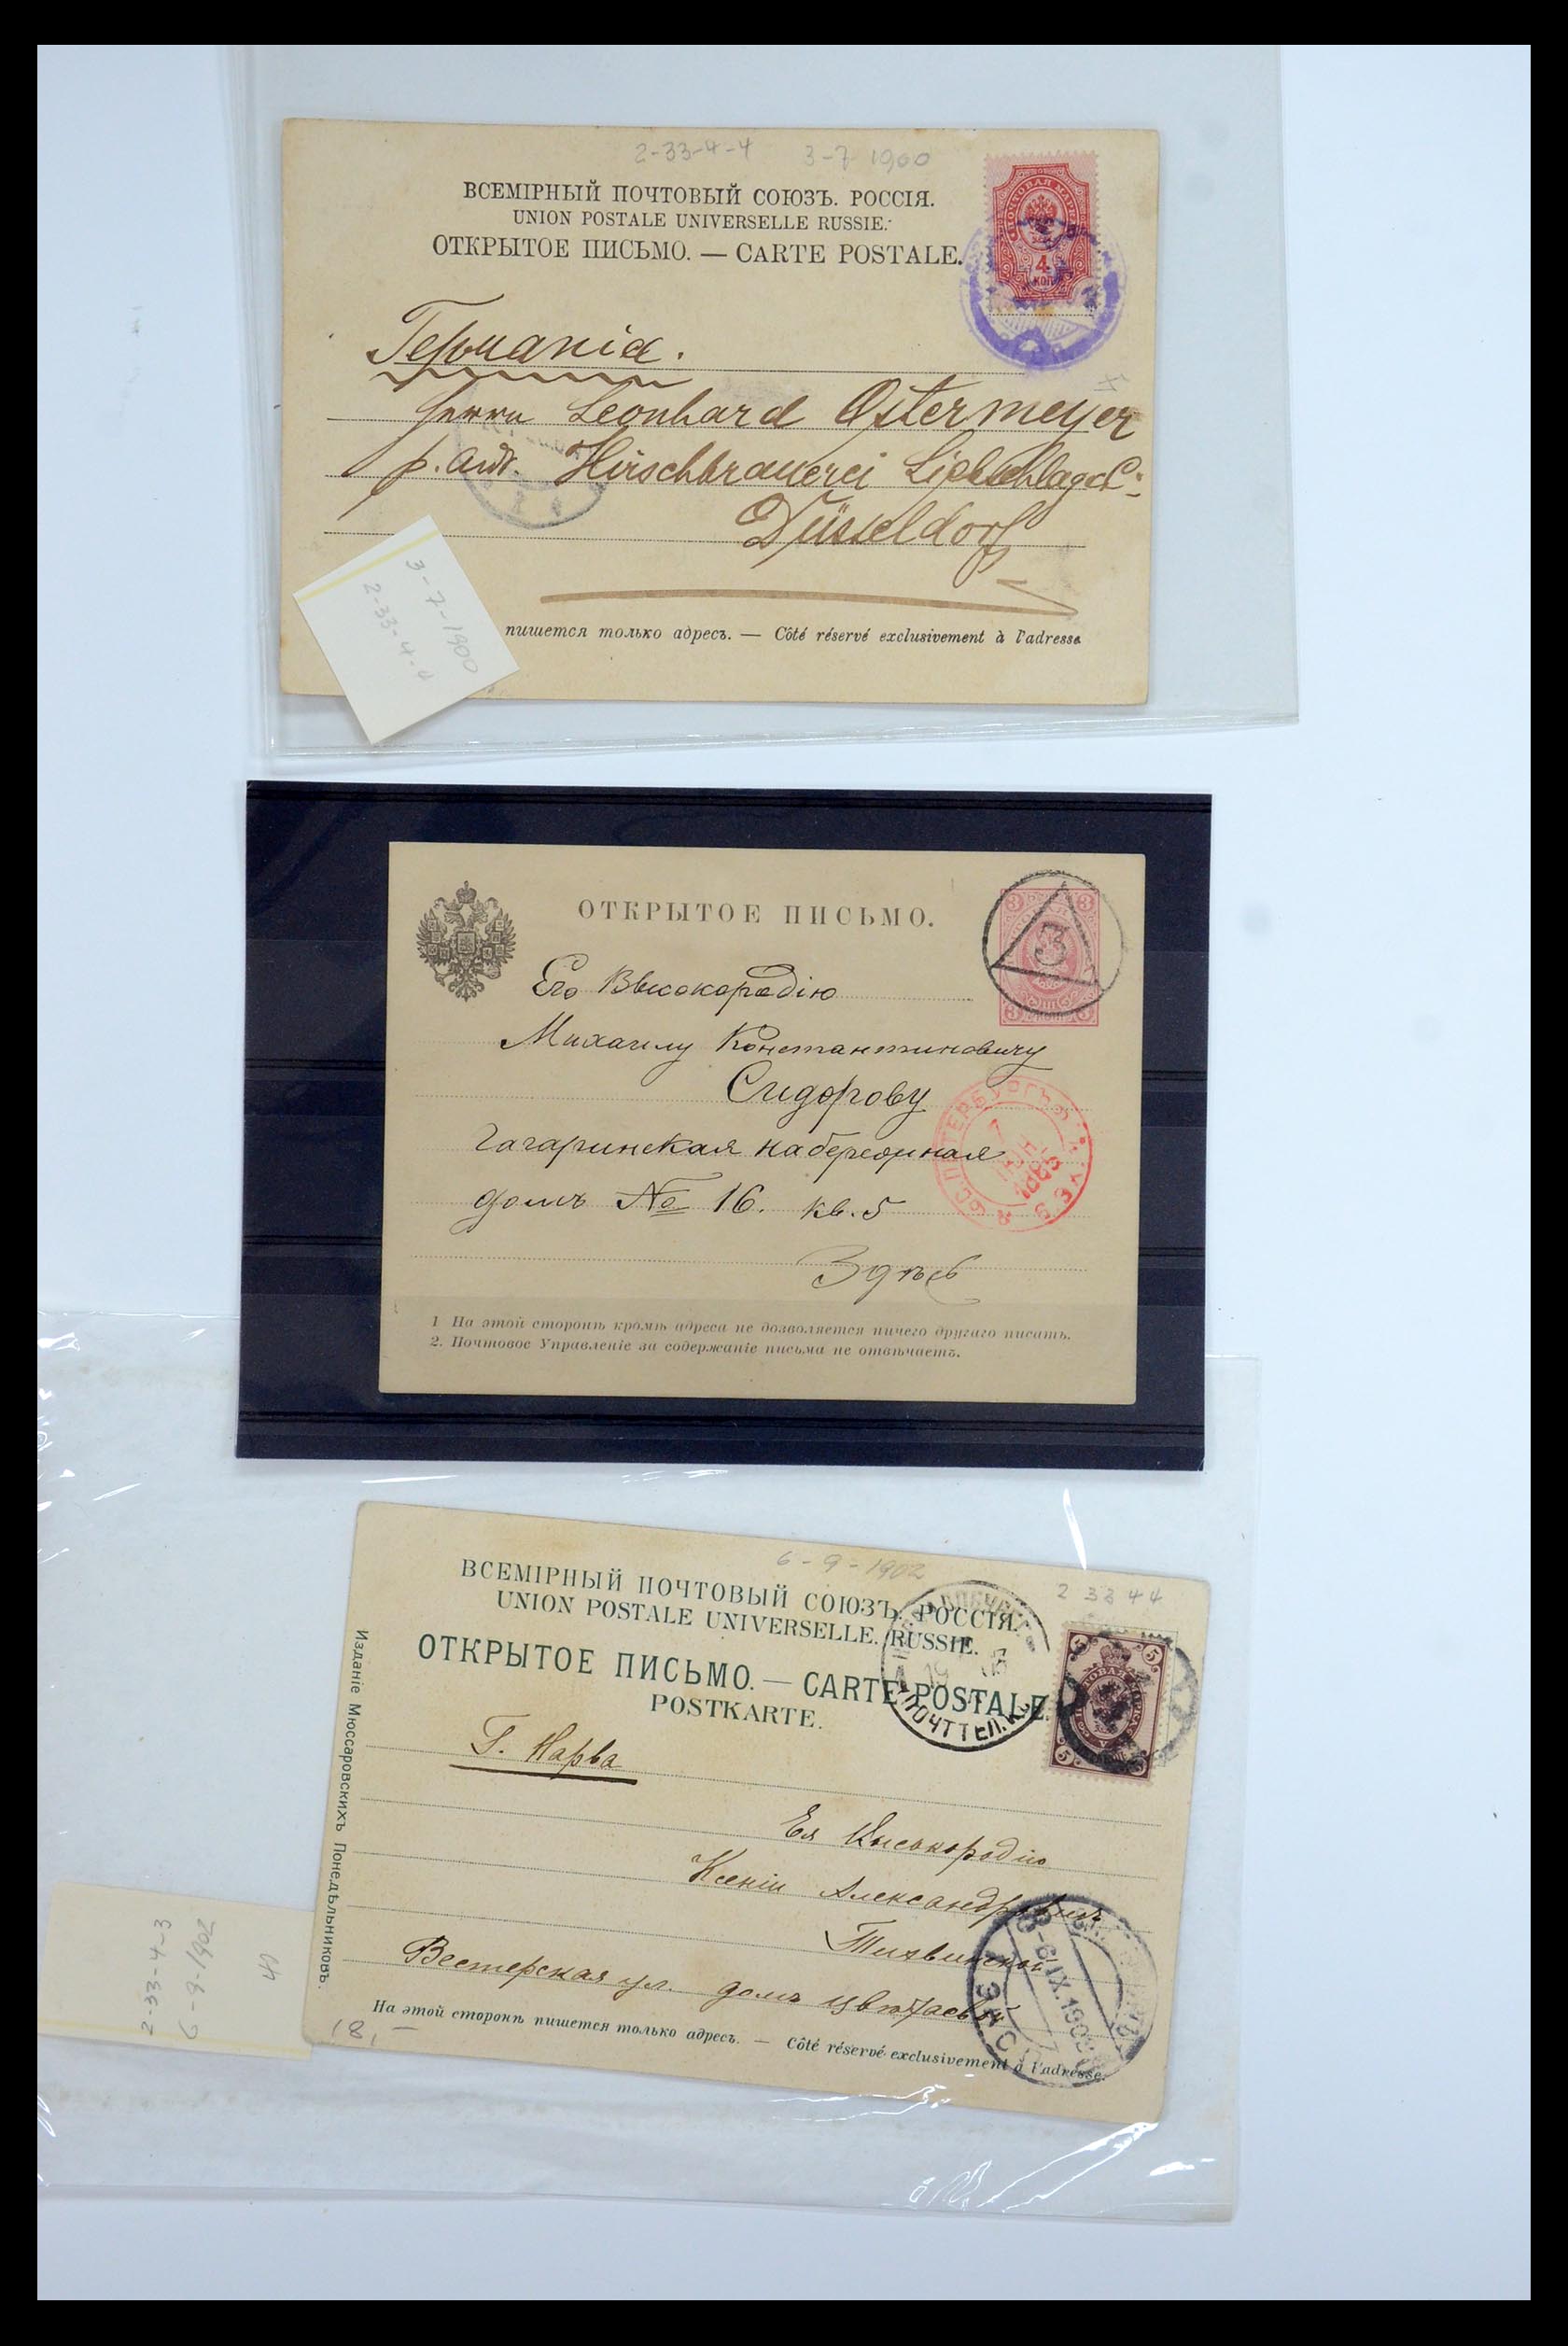 2-33-4-4 3-7 1900
ВСЕМІРНЫЙ ПОЧТОВЫЙ СОЮЗЪ. РОССІЯ.
UNION POSTALE UNIVERSELLE RUSSIE.
ОТКРЫТОЕ ПИСЬМО. — CARTE POSTALE.
ПОЧТОВАЯ МАРКА
4
КОП
Германія.
Herrn Leonhard Ostermeyer
p. adr. Hirschbrauerei
Düsseldorf
3-7-1900
2-33-4-4
пишется только адресъ. — Côté réservé exclusivement à l'adresse
ОТКРЫТОЕ ПИСЬМО.
3 3
3
3 3
Его Высокородію
Михаилу Константиновичу
Сидорову
Гагаринская набережная
домъ № 16. кв. 5
Здѣсь
С.ПЕТЕРБУРГЪ
7
1885
1 На этой сторонѣ кромѣ адреса не дозволяется ничего другаго писать.
2. Почтовое Управленіе за содержаніе письма не отвѣчаетъ.
6-9-1902
2 33 4 4
ВСЕМІРНЫЙ ПОЧТОВЫЙ СОЮЗЪ. РОССІЯ.
UNION POSTALE UNIVERSELLE. RUSSIE.
ОТКРЫТОЕ ПИСЬМО. — CARTE POSTALE.
POSTKARTE.
5 5
5 5
Г. Нарва
Ея Высокородію
Ксеніи Александровнѣ
Тихвинской
Вестерская ул. домъ
На этой сторонѣ пишется только адресъ. — Côté réservé exclusivement à l'adresse.
18,—
Изданіе Мюссаровскихъ Понедѣльниковъ.
2-33-4-3
6-9-1902